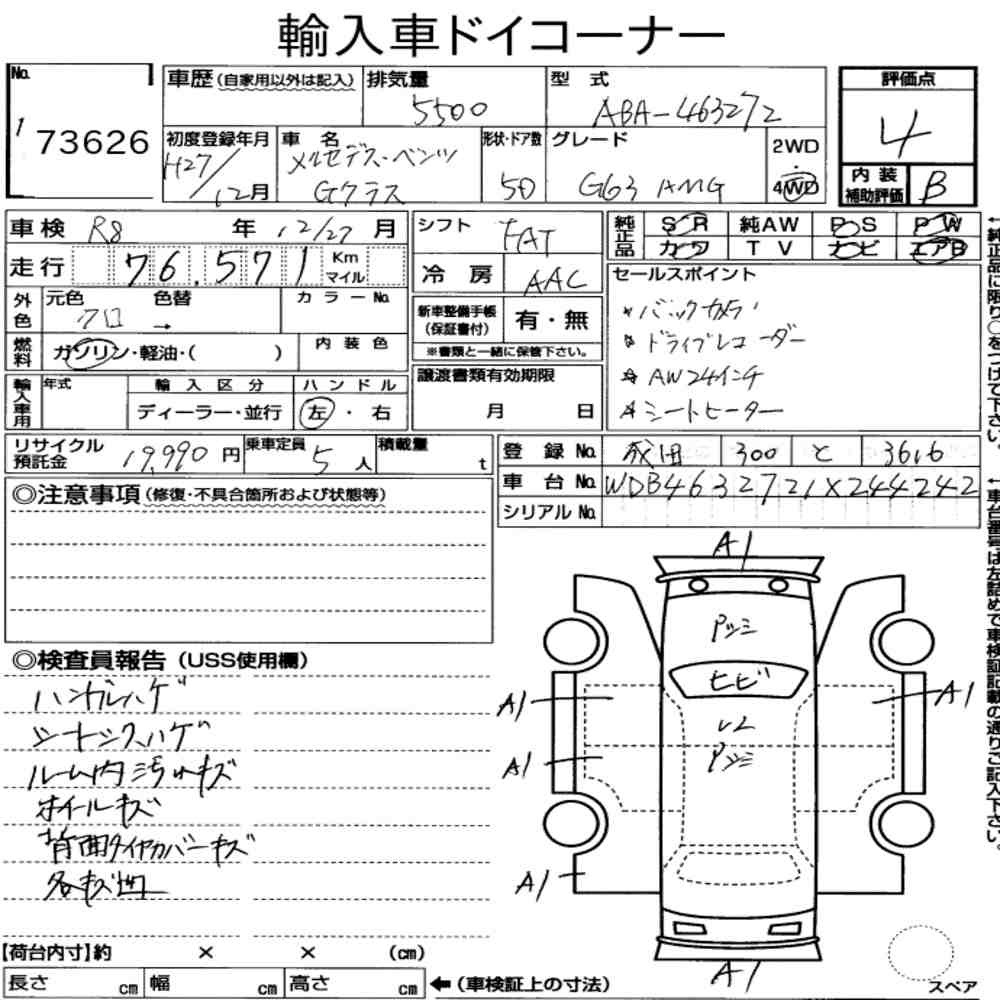 輸入車ドイコーナー
No. 1 73626
車歴(自家用以外は記入) 排気量 5500 型式 ABA-463272
評価点 4
初度登録年月 H27/12月 車名 メルセデス・ベンツ Gクラス 形状・ドア数 5D グレード G63 AMG 2WD 4WD
内装補助評価 B
車検 R8 年 12/27 月
シフト FAT
純正品 SR 純AW PS PW
カワ TV ナビ エアB
走行 76,571 Km マイル
冷房 AAC
セールスポイント
外色 元色 クロ 色替 → カラーNo.
新車整備手帳(保証書付) 有・無
※書類と一緒に保管下さい。
*バックカメラ
*ドライブレコーダー
*AW24インチ
*シートヒーター
燃料 ガソリン・軽油・( ) 内装色
譲渡書類有効期限
月 日
輸入車用 年式 輸入区分 ハンドル
ディーラー・並行 左・右
リサイクル預託金 19,990円 乗車定員 5人 積載量 t
登録No. 成田 300 と 3616
車台No. WDB4632721X244242
シリアルNo.
◎注意事項(修復・不具合箇所および状態等)
◎検査員報告(USS使用欄)
ハンドルハゲ
シートシワ、ハゲ
ルーム内汚れキズ
ホイールキズ
背面タイヤカバーキズ
各キズ凹
A1
Pツミ
ヒビ
A1 A1
Pツミ
A1
A1
A1
スペア
【荷台内寸】約 × × (cm)
長さ cm 幅 cm 高さ cm ←(車検証上の寸法)
←純正品に限り○をつけて下さい。
←車台番号は左詰めで車検証記載の通りご記入下さい。